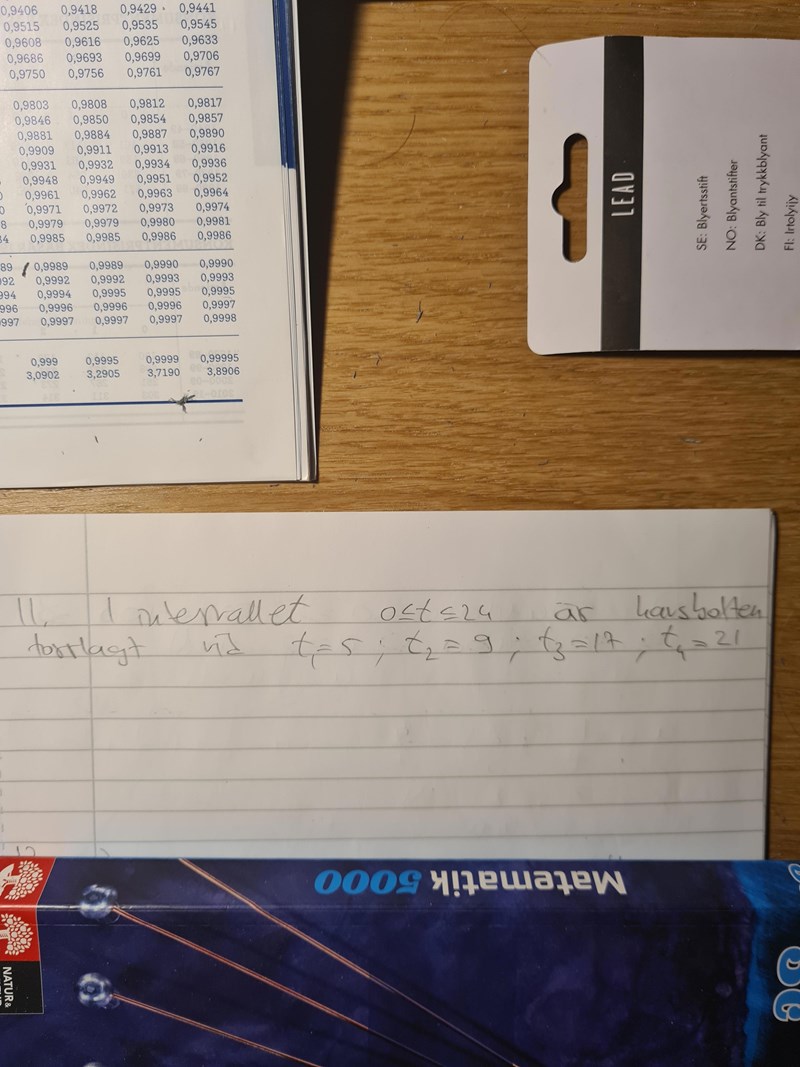 0,9406 0,9418 0,9429 0,9441
0,9515 0,9525 0,9535 0,9545
0,9608 0,9616 0,9625 0,9633
0,9686 0,9693 0,9699 0,9706
0,9750 0,9756 0,9761 0,9767
0,9803 0,9808 0,9812 0,9817
0,9846 0,9850 0,9854 0,9857
0,9881 0,9884 0,9887 0,9890
0,9909 0,9911 0,9913 0,9916
0,9931 0,9932 0,9934 0,9936
0,9948 0,9949 0,9951 0,9952
0,9961 0,9962 0,9963 0,9964
0,9971 0,9972 0,9973 0,9974
0,9979 0,9979 0,9980 0,9981
0,9985 0,9985 0,9986 0,9986
89 0,9989 0,9989 0,9990 0,9990
992 0,9992 0,9992 0,9993 0,9993
994 0,9994 0,9995 0,9995 0,9995
996 0,9996 0,9996 0,9996 0,9997
9997 0,9997 0,9997 0,9997 0,9998
0,999 0,9995 0,9999 0,99995
3,0902 3,2905 3,7190 3,8906
LEAD
SE: Blyertsstift
NO: Blyantstifter
DK: Bly til trykkblyant
FI: Irtolyijy
11. I intervallet 0≤t≤24 är havsbotten
torrlagt vid t₁=5 ; t₂=9 ; t₃=17 ; t₄=21
Matematik 5000
NATUR &